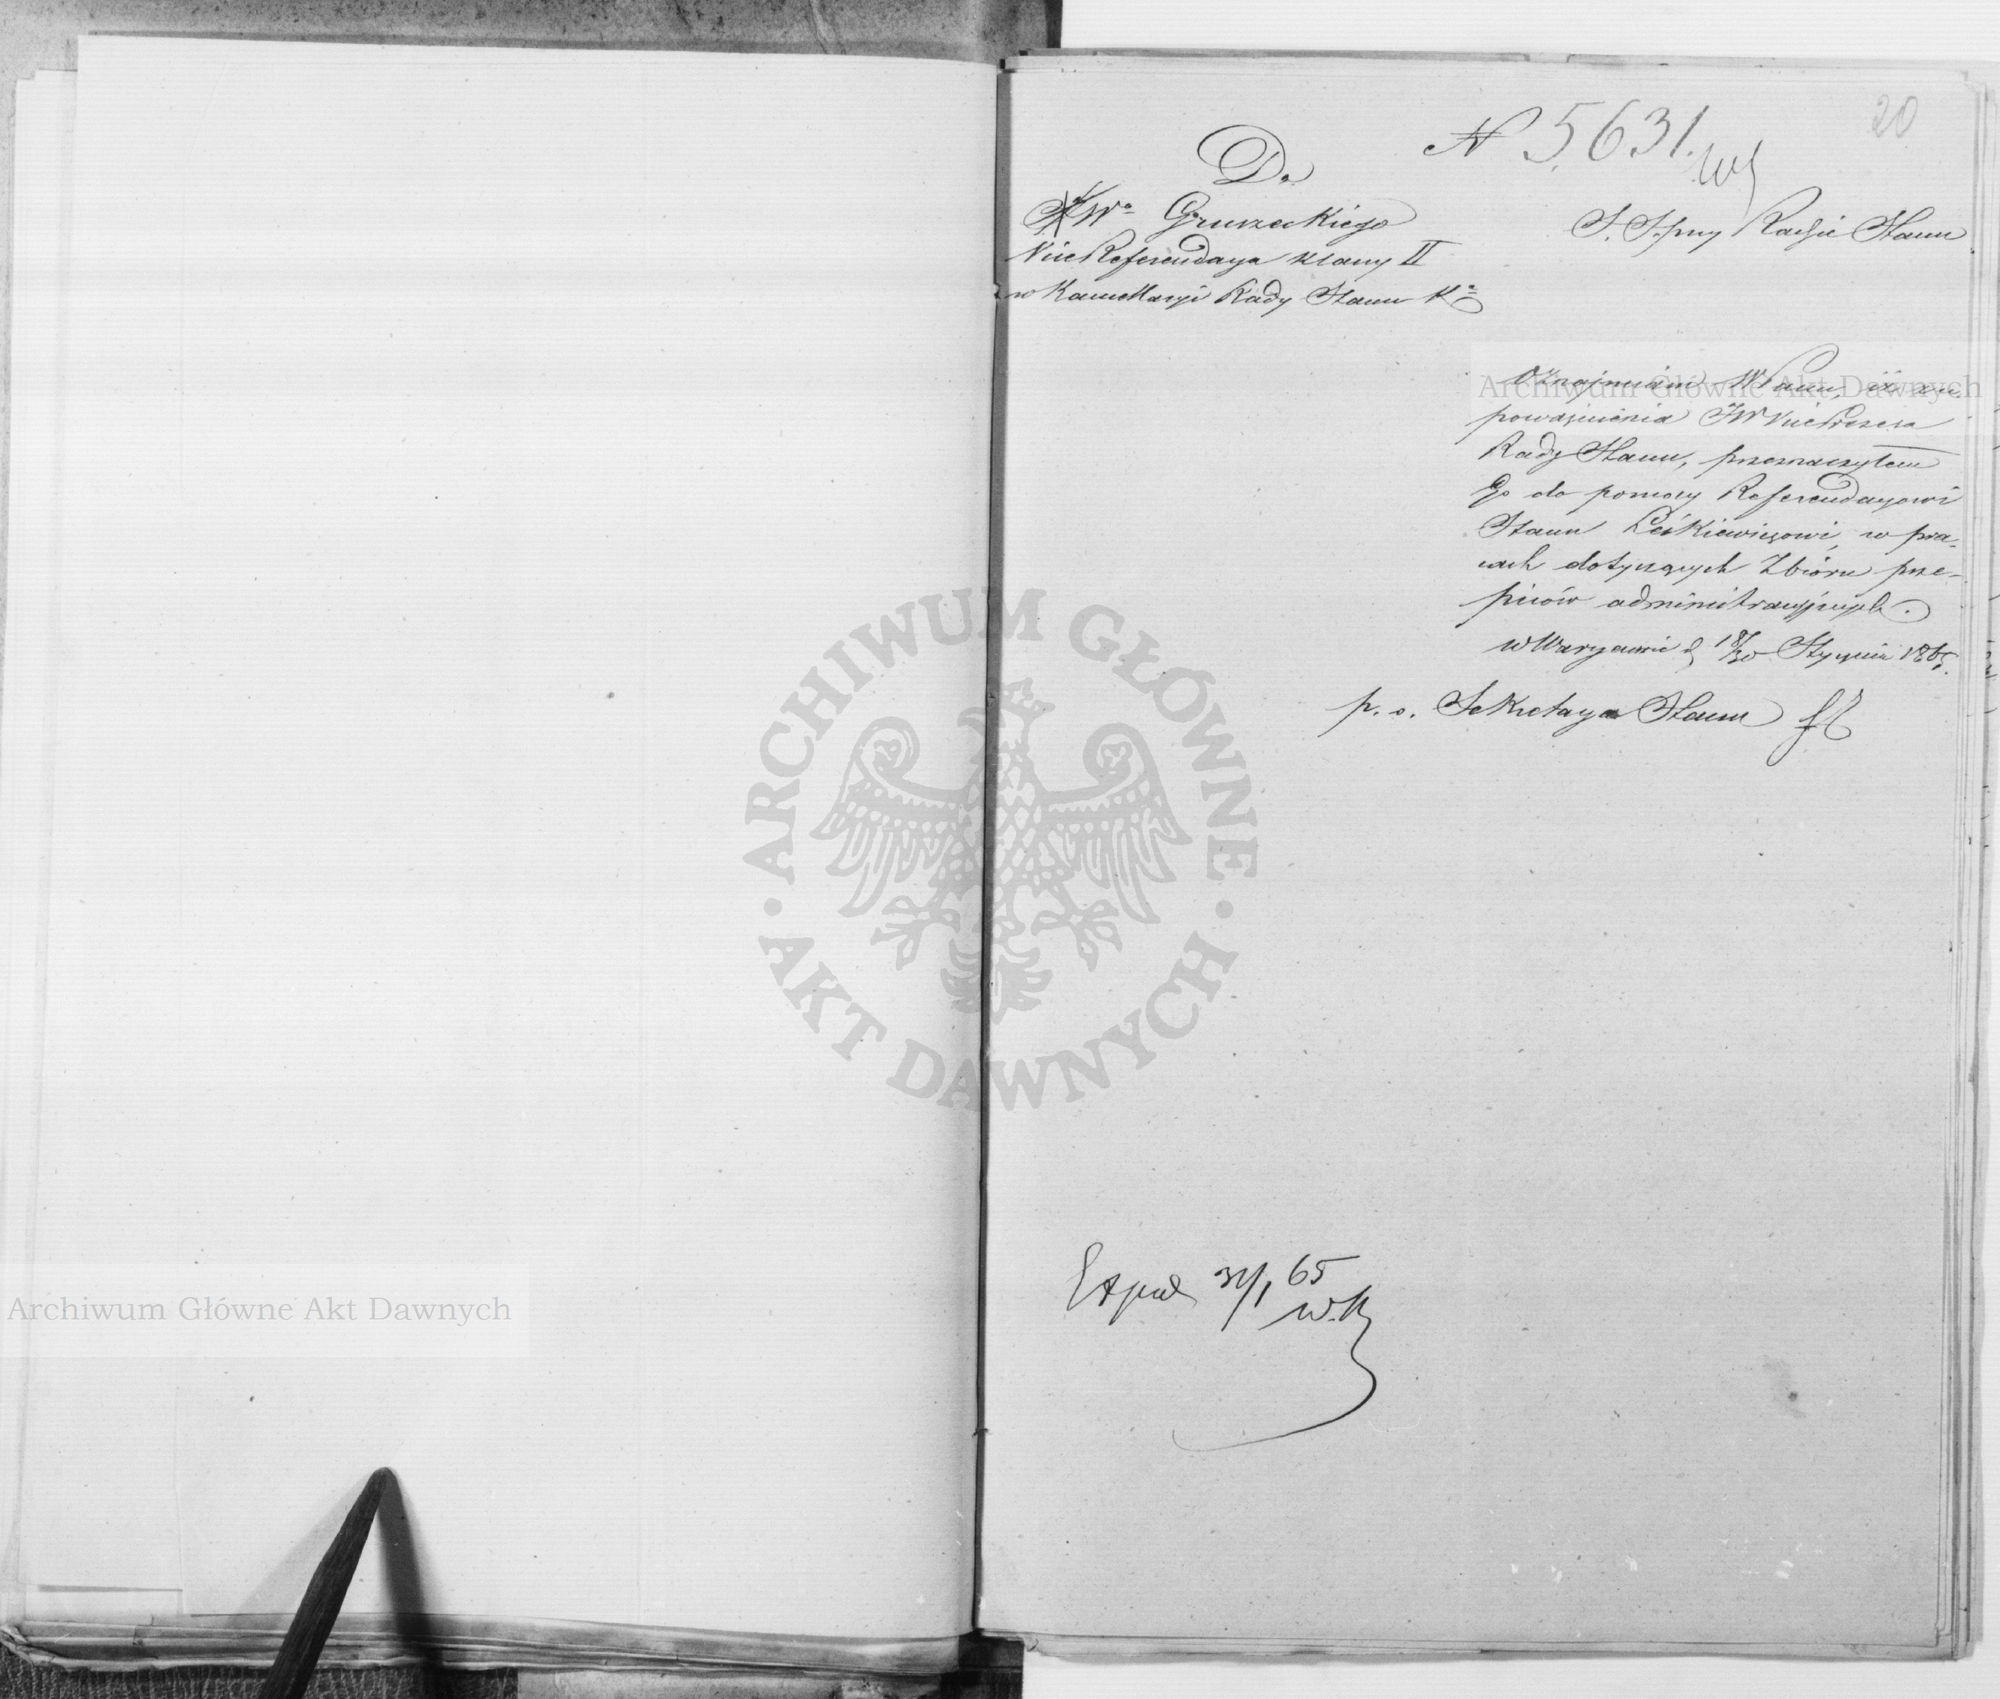 20
N 5631.
Do
JWo Gruzeckiego
ViceReferendarza klassy II
w Kancellaryi Rady Stanu Ka
S. S. przy Radzie Stanu
Oznajmiam WPanu, iż z u
poważnienia JW VicePrezesa
Rady Stanu, przeznaczyłem
Go do pomocy Referendarzowi
Stanu Leśkiewiczowi, w pra-
cach dotyczących Zbioru prze-
pisów administracyjnych.
w Warszawie d 18/30 Stycznia 1865.
p. o. Sekretarza Stanu
Exped 31/1 65
W.K
ARCHIWUM GŁÓWNE
AKT DAWNYCH
Archiwum Główne Akt Dawnych
Archiwum Główne Akt Dawnych